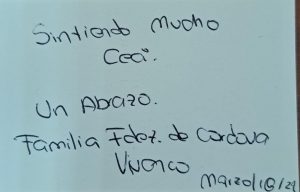 Sintiendo Mucho
Ceci.
Un Abrazo.
Familia Fdez. de Cordova
Marzo/16/21